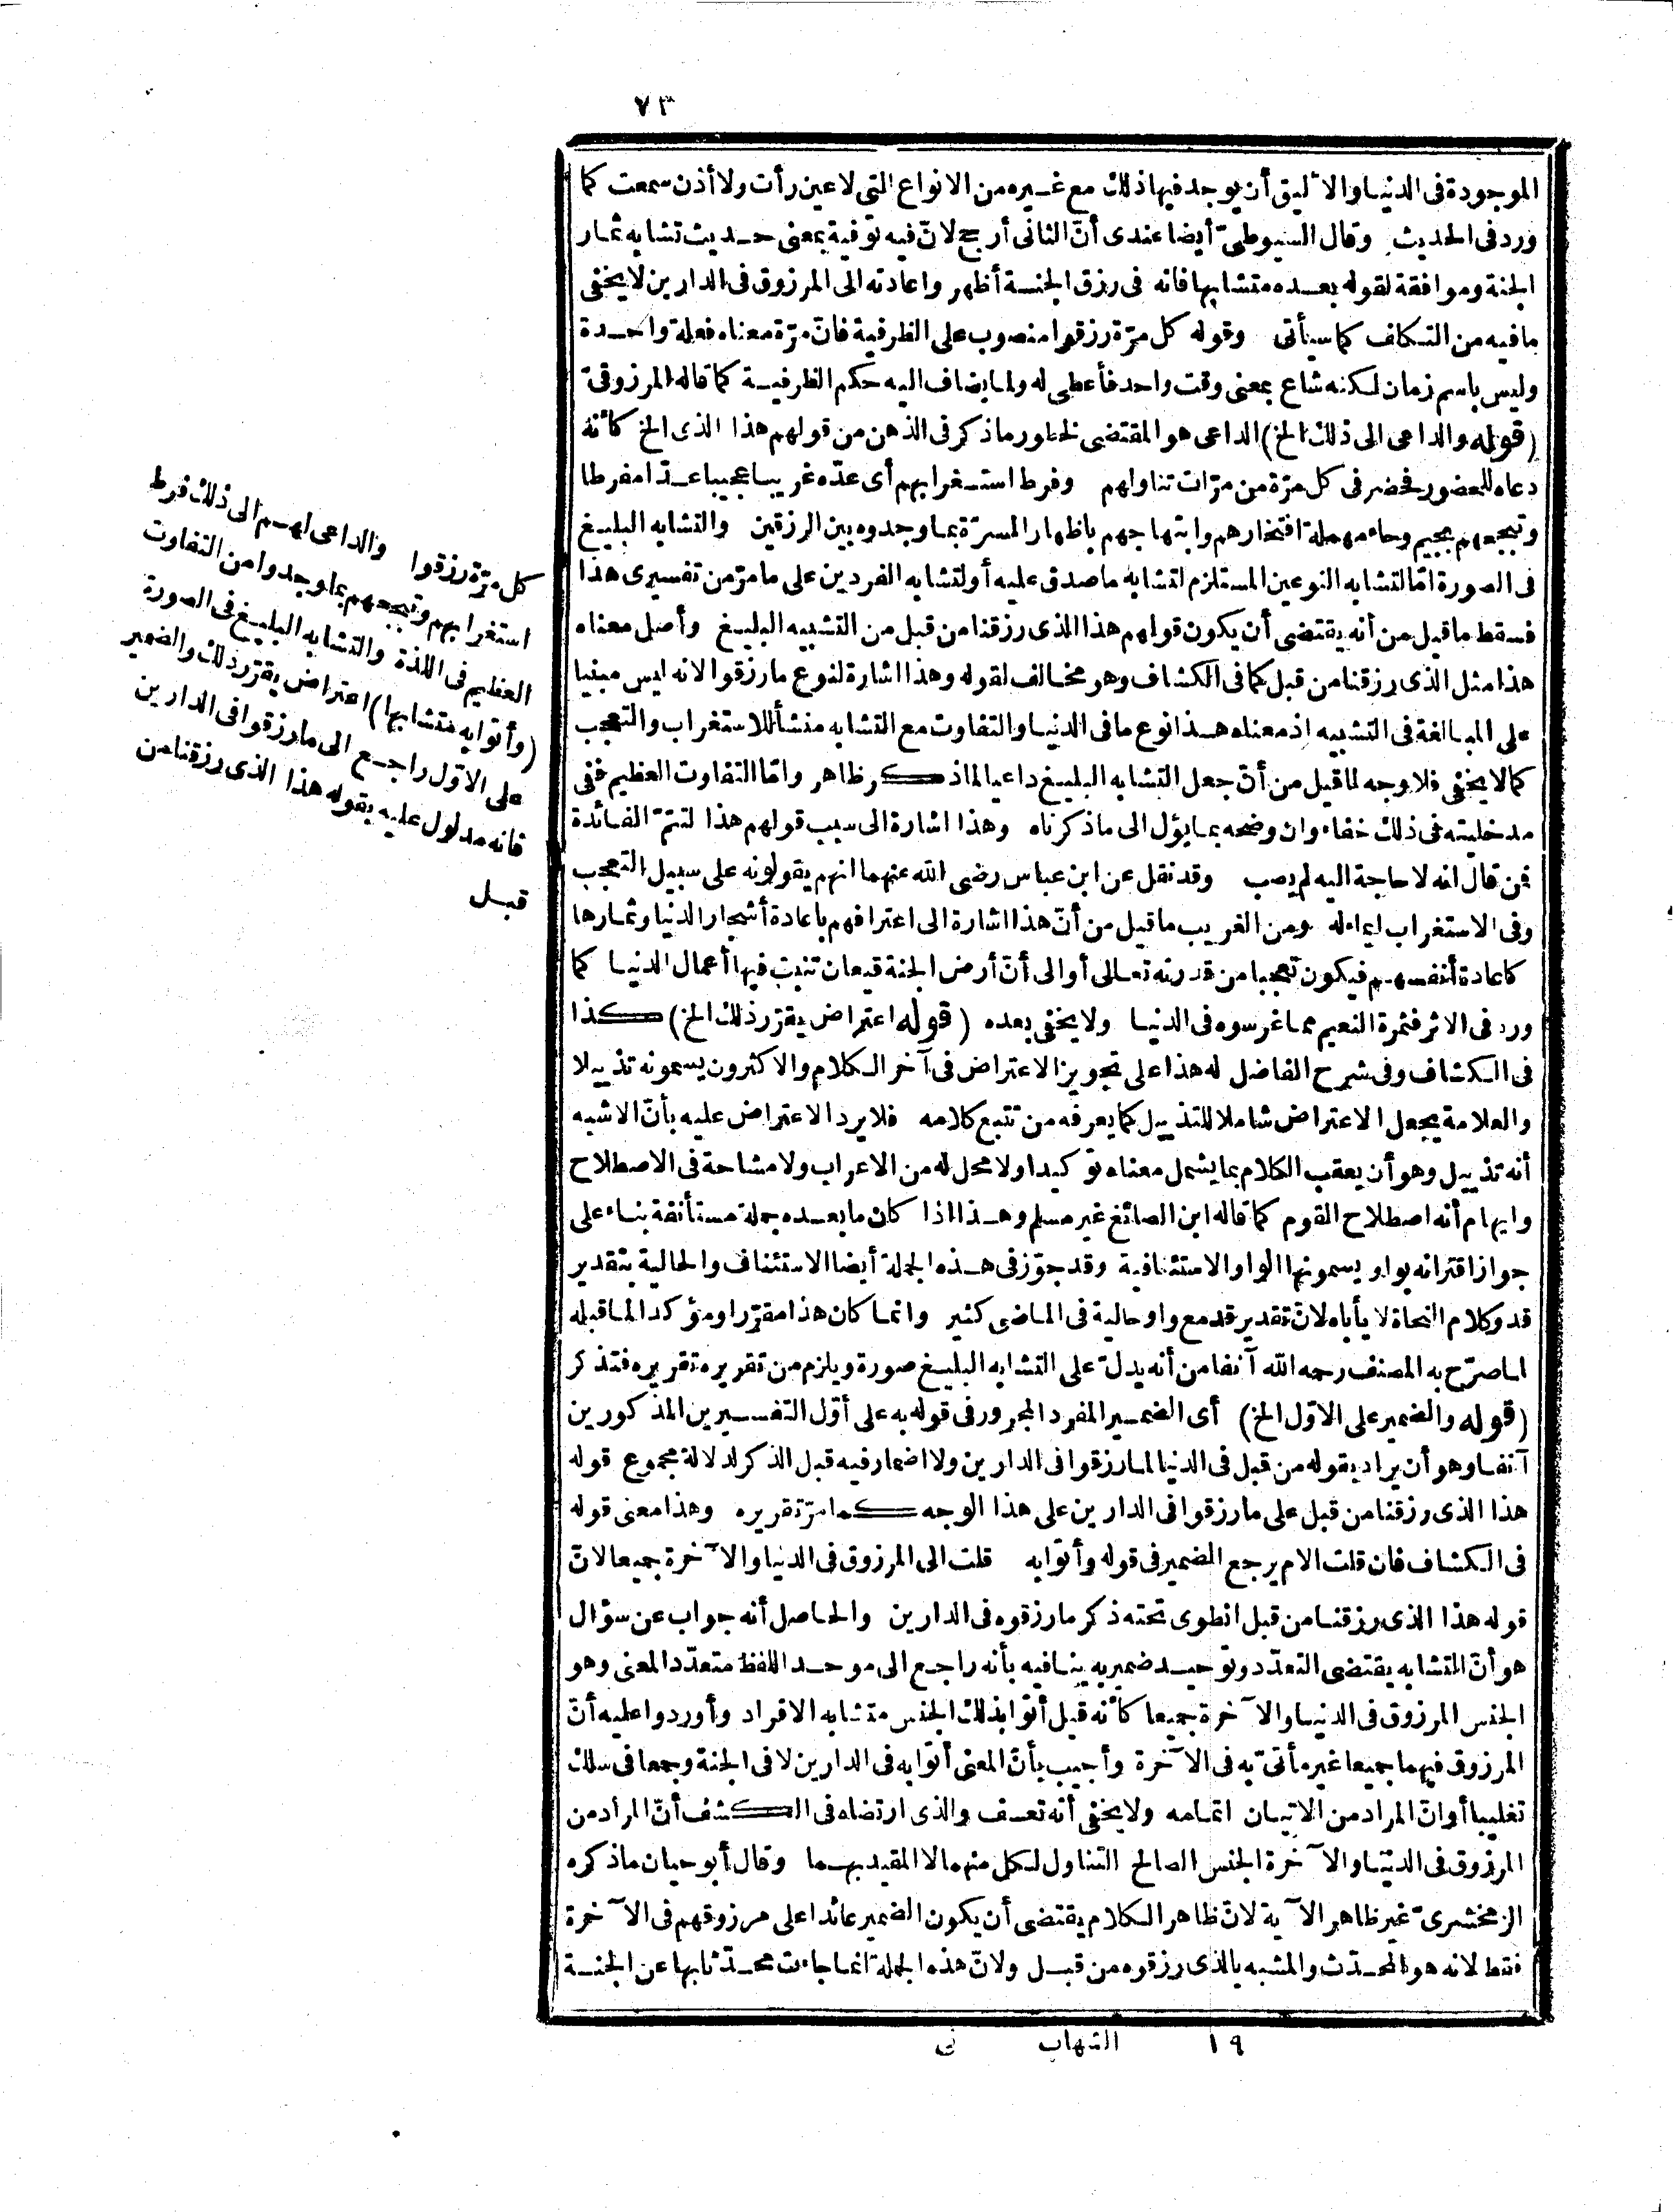 ٧٣
الموجودة فى الدنيا والاليق أن يوجد فيها ذلك مع غيره من الانواع التى لا عين رأت ولا أذن سمعت كما
ورد فى الحديث وقال السيوطىّ أيضا عندى أنّ الثانى أرجح لانّ فيه توفية بمعنى حديث تشابه ثمار
الجنة وموافقة لقوله بعده متشابها فانه فى رزق الجنة أظهر واعادته الى المرزوق فى الدارين لا يخفى
ما فيه من التكلف كما سيأتى وقوله كل مرّة رزقوا منصوب على الظرفية فانّ مرّة معناه فعلة واحدة
وليس باسم زمان لكنه شاع بمعنى وقت واحد فأعطى له ولما يضاف اليه حكم الظرفية كما قاله المرزوقىّ
(قوله والداعى الى ذلك الخ) الداعى هو المقتضى لخطور ما ذكر فى الذهن من قولهم هذا الذى الخ كأنه
دعاه للحضور فحضر فى كل مرّة من مرّات تناولهم وفرط استغرابهم أى عدّه غريبا عجيبا عدّا مفرطا
وتبجحهم بجيم وحاء مهملة افتخارهم وابتهاجهم باظهار المسرّة بما وجدوه بين الرزقين والتشابه البليغ
فى الصورة امّا لتشابه النوعين المستلزم لتشابه ما صدق عليه أو لتشابه الفردين على ما مرّ من تفسيرى هذا
فسقط ما قيل من أنه يقتضى أن يكون قولهم هذا الذى رزقنا من قبل من التشبيه البليغ وأصل معناه
هذا مثل الذى رزقنا من قبل كما فى الكشاف وهو مخالف لقوله وهذا اشارة لنوع ما رزقوا لانه ليس مبنيا
على المبالغة فى التشبيه اذ معناه هذا نوع ما فى الدنيا والتفاوت مع التشابه منشأ للاستغراب والتعجب
كما لا يخفى فلا وجه لما قيل من أنّ جعل التشابه البليغ داعيا لما ذكر ظاهر وامّا التفاوت العظيم ففى
مدخليته فى ذلك خفاء وان وضحه بما يؤل الى ما ذكرناه وهذا اشارة الى سبب قولهم هذا لتتمّ الفائدة
فمن قال انه لا حاجة اليه لم يصب وقد نقل عن ابن عباس رضى الله عنهما انهم يقولونه على سبيل التعجب
وفى الاستغراب ايماء له ومن الغريب ما قيل من أنّ هذا اشارة الى اعترافهم باعادة أشجار الدنيا وثمارها
كاعادة أنفسهم فيكون تعجبا من قدرته تعالى أو الى أنّ أرض الجنة قيعان تنبت فيها أعمال الدنيا كما
ورد فى الاثر فثمرة النعيم مما غرسوه فى الدنيا ولا يخفى بعده (قوله اعتراض يقرّر ذلك الخ) كذا
فى الكشاف وفى شرح الفاضل له هذا على تجويز الاعتراض فى آخر الكلام والاكثرون يسمونه تذييلا
والعلامة يجعل الاعتراض شاملا للتذييل كما يعرفه من تتبع كلامه فلا يرد الاعتراض عليه بأنّ الاشبه
أنه تذييل وهو أن يعقب الكلام بما يشمل معناه توكيدا ولا محل له من الاعراب ولا مشاحة فى الاصطلاح
وايهام أنه اصطلاح القوم كما قاله ابن الصائغ غير مسلم وهذا اذا كان ما بعده جملة مستأنفة بناء على
جواز اقترانه بواو يسمونها الواو الاستئنافية وقد جوّز فى هذه الجملة أيضا الاستئناف والحالية بتقدير
قد وكلام النحاة لا يأباه لانّ تقدير قد مع واو حالية فى الماضى كثير وانما كان هذا مقرّرا ومؤكدا لما قبله
لما صرّح به المصنف رحمه الله آنفا من أنه يدلّ على التشابه البليغ صورة ويلزم من تقريره تقريره فتذكر
(قوله والضمير على الاوّل الخ) أى الضمير المفرد المجرور فى قوله به على أوّل التفسيرين المذكورين
آنفا وهو أن يراد بقوله من قبل فى الدنيا لما رزقوا فى الدارين ولا اضمار فيه قبل الذكر لدلالة مجموع قوله
هذا الذى رزقنا من قبل على ما رزقوا فى الدارين على هذا الوجه كما مرّ تقريره وهذا معنى قوله
فى الكشاف فان قلت الام يرجع الضمير فى قوله وأتوا به قلت الى المرزوق فى الدنيا والآخرة جميعا لانّ
قوله هذا الذى رزقنا من قبل انطوى تحته ذكر ما رزقوه فى الدارين والحاصل أنه جواب عن سؤال
هو أنّ التشابه يقتضى التعدّد وتوحيد ضمير به ينافيه بأنه راجع الى موحد اللفظ متعدّد المعنى وهو
الجنس المرزوق فى الدنيا والآخرة جميعا كأنه قيل أتوا بذلك الجنس متشابه الافراد وأوردوا عليه أنّ
المرزوق فيهما جميعا غير مأتىّ به فى الآخرة وأجيب بأنّ المعنى أتوا به فى الدارين لا فى الجنة وجمعا فى سلك
تغليبا أو انّ المراد من الاتيان اتمامه ولا يخفى أنه تعسف والذى ارتضاه فى الكشف أنّ المراد من
المرزوق فى الدنيا والآخرة الجنس الصالح التناول لكل منهما لا المقيد بهما وقال أبو حيان ما ذكره
الزمخشرىّ غير ظاهر الآية لانّ ظاهر الكلام يقتضى أن يكون الضمير عائدا على مرزوقهم فى الآخرة
فقط لانه هو المحدّث والمشبه بالذى رزقوه من قبل ولانّ هذه الجملة انما جاءت محدّثا بها عن الجنة
كل مرّة رزقوا والداعى لهم الى ذلك فرط
استغرابهم وتبجحهم بما وجدوا من التفاوت
العظيم فى اللذة والتشابه البليغ فى الصورة
(وأتوا به متشابها) اعتراض يقرّر ذلك والضمير
على الاوّل راجع الى ما رزقوا فى الدارين
فانه مدلول عليه بقوله هذا الذى رزقنا من
قبل
١٩ الشهاب نى